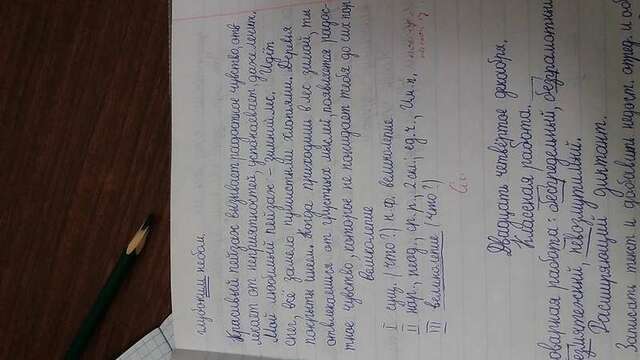 глубоким небом.
Красивый пейзаж вызывает радостное чувство, отв
лекает от неприятностей, успокаевает, даже лечит.
Мой любимый пейзаж - зимний лес. Идёт
снег, всё замело пушистыми хлопьями. Деревья
покрыты инеем. Когда приходишь в лес зимой, ты
отвлекаешся от грустных мыслей, появляется радос-
тное чувство, которое не покидает тебя до сих пор
великолепие
I сущ. (что?) н.ф. великолепие
II нар., неод., ср.р., 2 скл.; ед.ч., Им.п.
III великолепие (что?)
Двадцать четвёртое декабря.
Классная работа.
оварная работа: беспредельный, безграмотный
безмятежний, невозмутимый.
Расширяющий диктант.
Записать текст и добавить недост. опред. и об